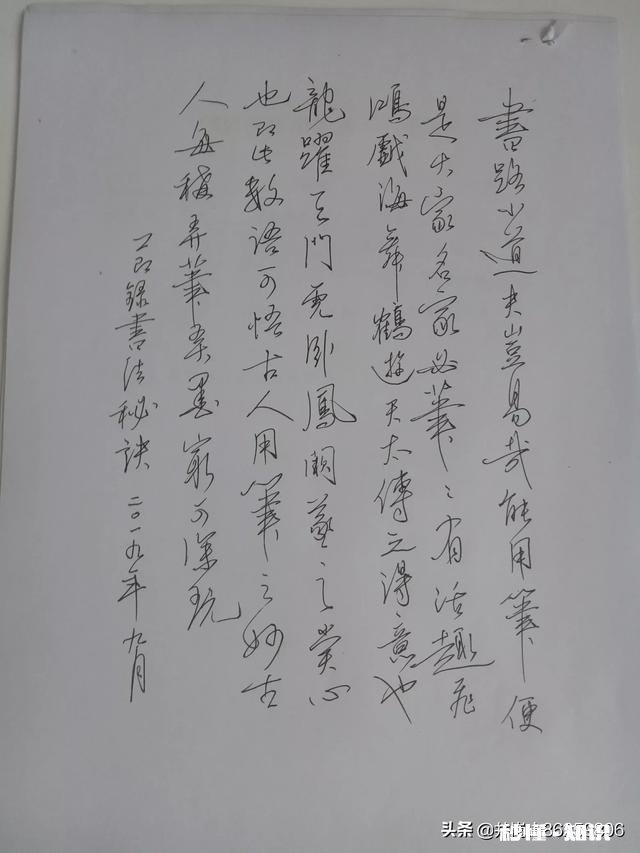 書路小道夫豈易哉能用筆便
是大家名家必筆〻有活趣飛
鴻戲海舞鶴遊天太傅之得意也
龍躍天門虎卧鳳閣羲之賞心
也即此數語可悟古人用筆之妙古
人每稱弄筆墨最可深玩
錄書法秘訣 二〇一九年九月
头条 @
秒懂·知识